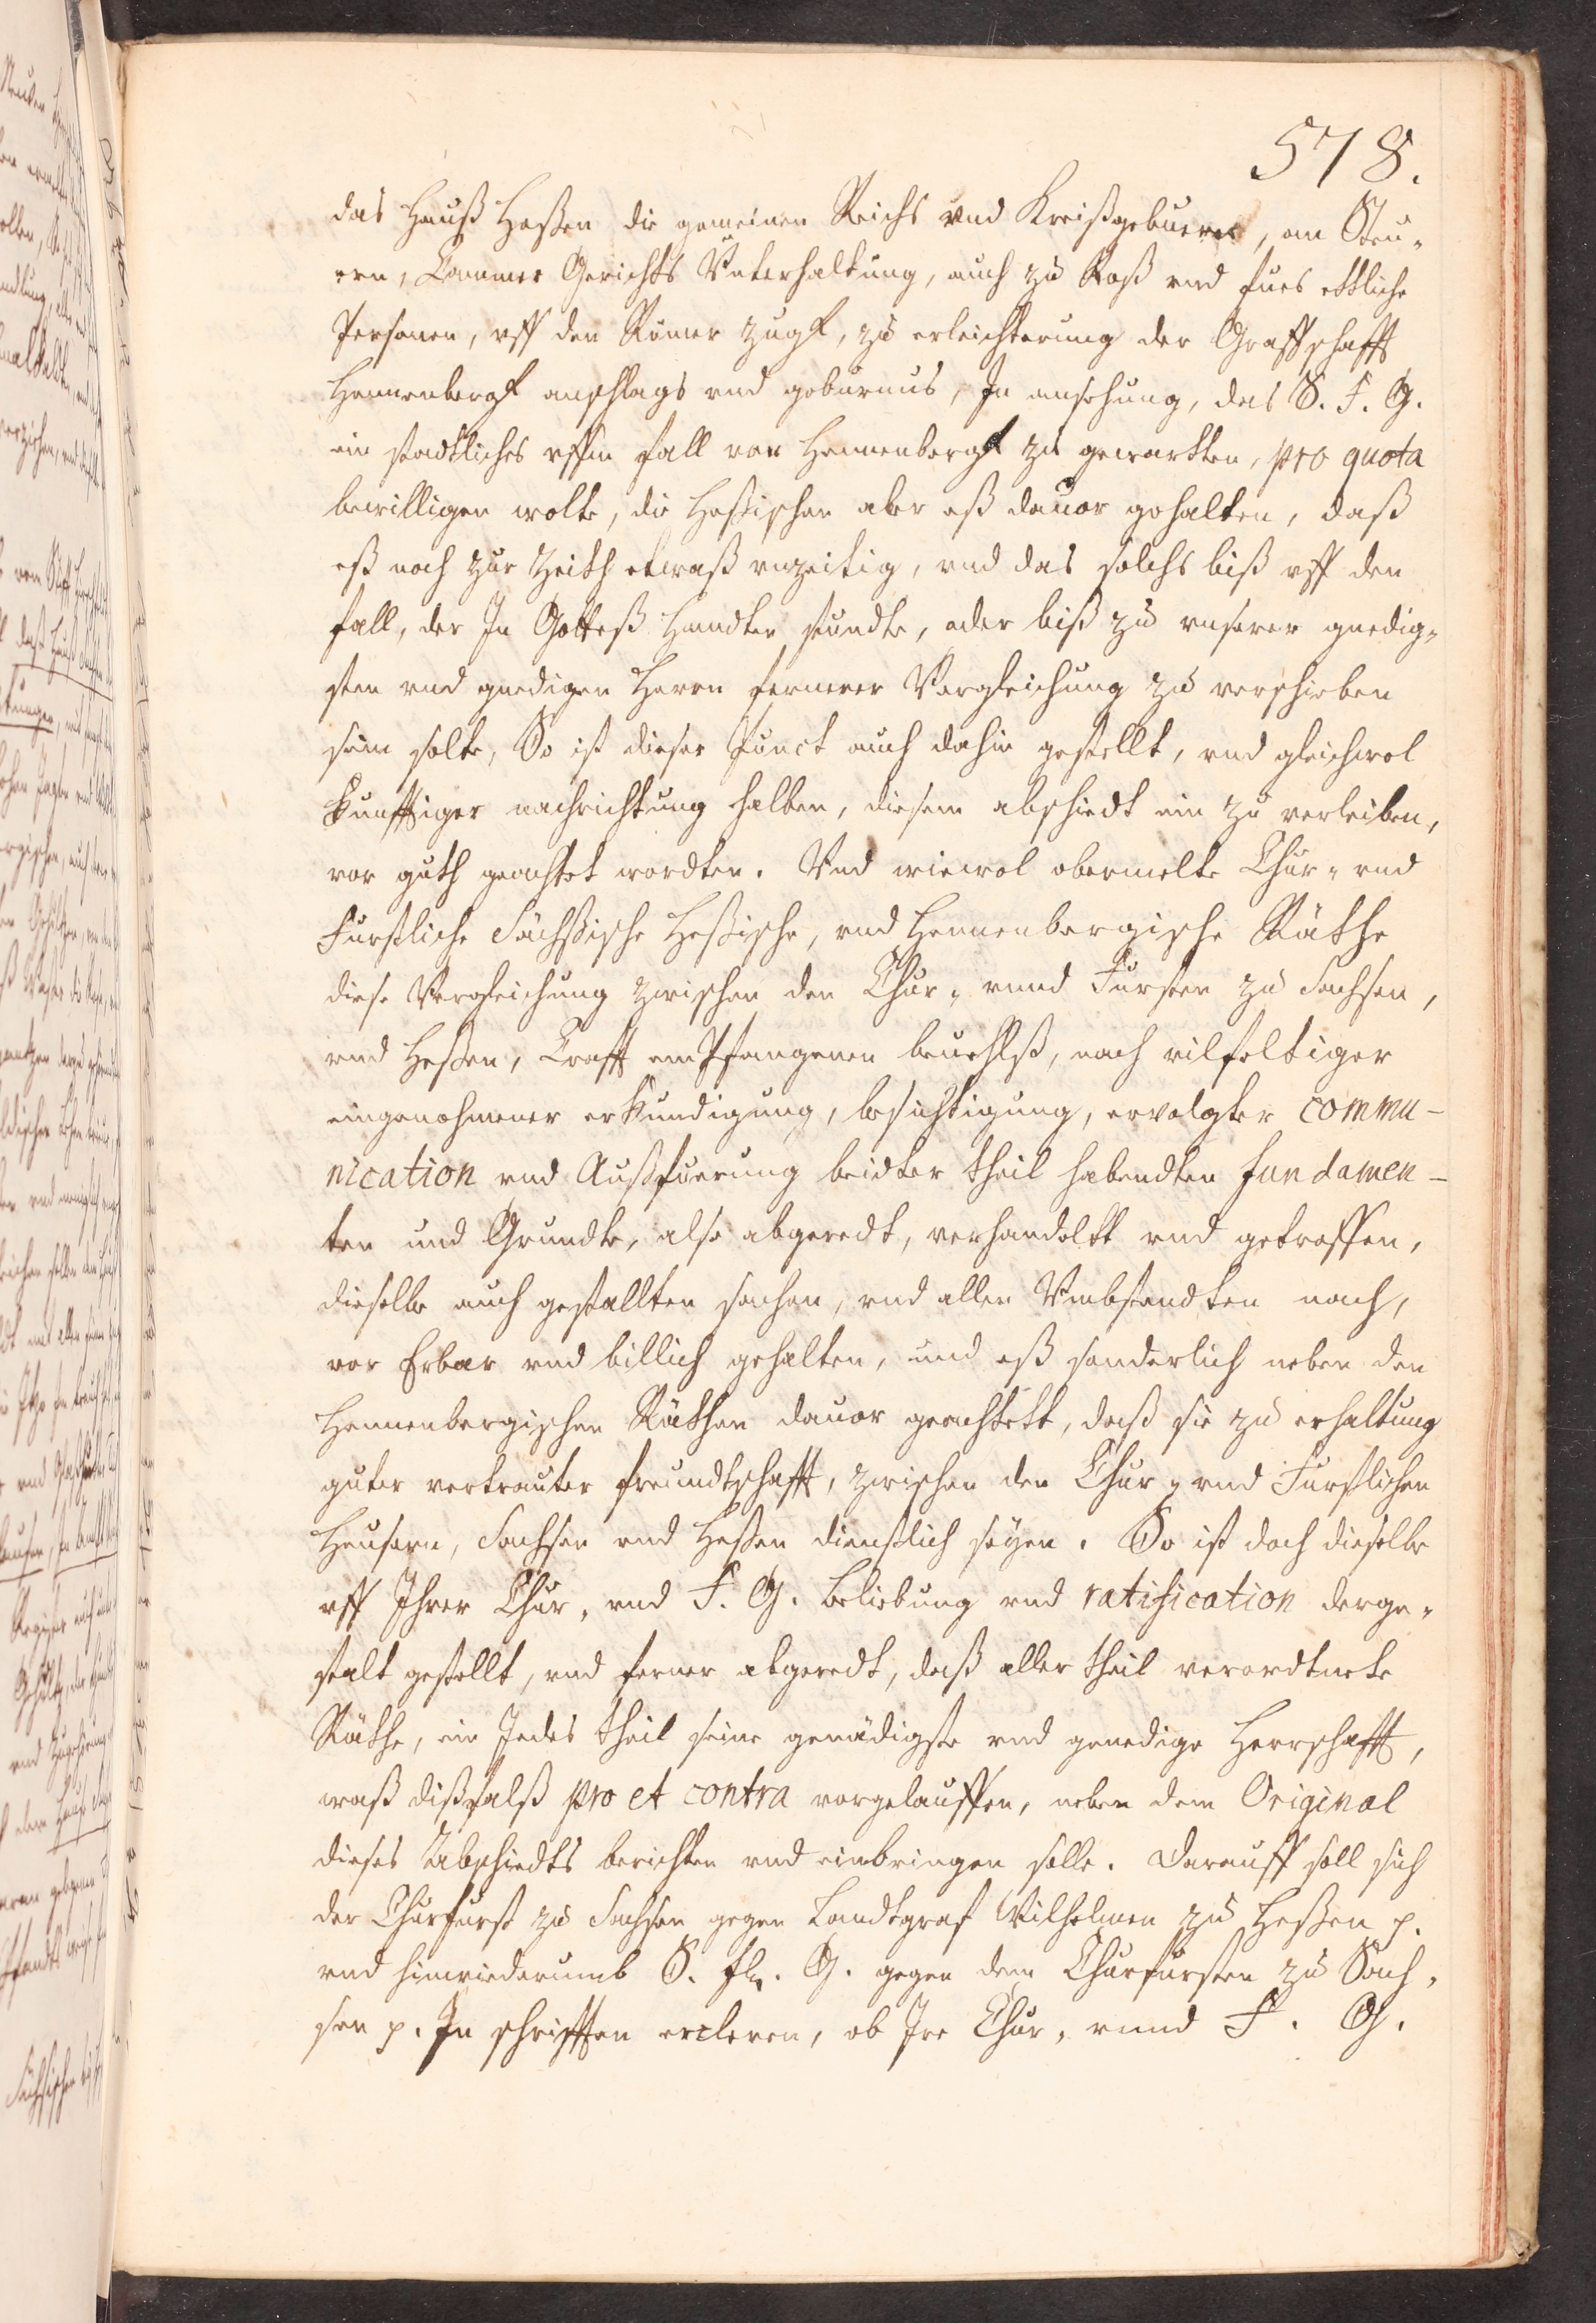 578.
das Hauß Heßen die gemeinen Reichs vnd Kreißgebuern, an Steu„
ern, Cammer Gerichts Vnterhaltung, auch zu Roß vnd fues ettliche
Personen, vff den Römer zugk, zu erleichterung der Graffschafft
Hennenbergk anschlags vnd geburnus, In ansehung, das S. F. G.
ein stadtliches vffm fall von Hennenbergk zu gewartten, pro quota
bewilligen wolte, die Heßischen aber eß dauor gehalten, daß
eß noch zur Zeith etwaß vnzeitig, vnd das solchs biß vff den
fall, der In Gotteß Handten stundte, oder biß zu vnserer gnedig„
sten vnd gnedigen Herrn fernerer Vergleichung zu verschieben
sein solte, So ist dieser Punct auch dahin gestellt, vnd gleichwol
kunfftiger nachrichtung halben, diesem abschiedt ein zu verleiben,
vor guth geachtet wordten. Vnd wiewol obermelte Chur„ vnd
Furstliche Sächßische Heßische, vnd Hennenbergische Räthe
diese Vergleichung zwischen den Chur„ vnnd Fursten zu Sachsen,
vnd Heßen, Crafft empfangenen beuehlß, nach vilfeltiger
eingenohmener erkundigung, besichtigung, ervolgter commu-
nication vnd Außfuerung beidter theil habendten fundamen-
ten und Grundte, also abgeredt, verhandeltt vnd getroffen,
dieselbe auch gestallten sachen, vnd allen Vmbstandten nach,
vor Erbar vnd billich gehalten, und eß sonderlich neben den
Hennenbergischen Räthen dauor geachtett, daß sie zu erhaltung
guter vertrauter freundtschafft, zwischen den Chur„ vnd Furstlichen
Heusern, Sachsen vnd Heßen dienstlich seyen. So ist doch dieselbe
vff Ihrer Chur„ vnd F. G. beliebung vnd ratification derge„
stalt gestellt, vnd ferner abgeredt, daß aller theil verordtnete
Räthe, ein Jedes theil seine genädigste vnd genedige Herrschafft,
waß dißfalß pro et contra vorgelauffen, neben dem Original
dieses Abschiedts berichten vnd einbringen solle. Darauff soll sich
der Churfurst zu Sachsen gegen Landtgraf Wilhelmen zu Heßen p.
vnd hinwiederumb S. fl. G. gegen dem Churfursten zu Sach„
sen p. In schrifften ercleren, ob Ire Chur„ vnnd F. G.